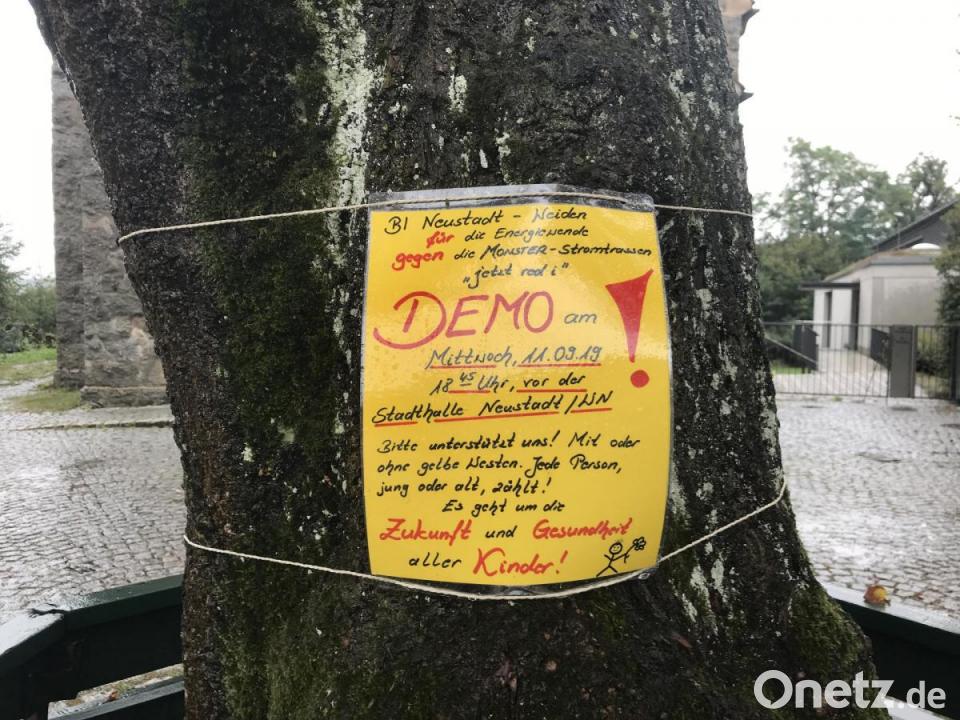 BI Neustadt - Weiden
für die Energiewende
gegen die MONSTER-Stromtrassen
„jetzt red i"
DEMO am !
Mittwoch, 11.09.19
18 45 Uhr, vor der
Stadthalle Neustadt/WN
Bitte unterstützt uns! Mit oder
ohne gelbe Westen. Jede Person,
jung oder alt, zählt!
Es geht um die
Zukunft und Gesundheit
aller Kinder!
Onetz.de